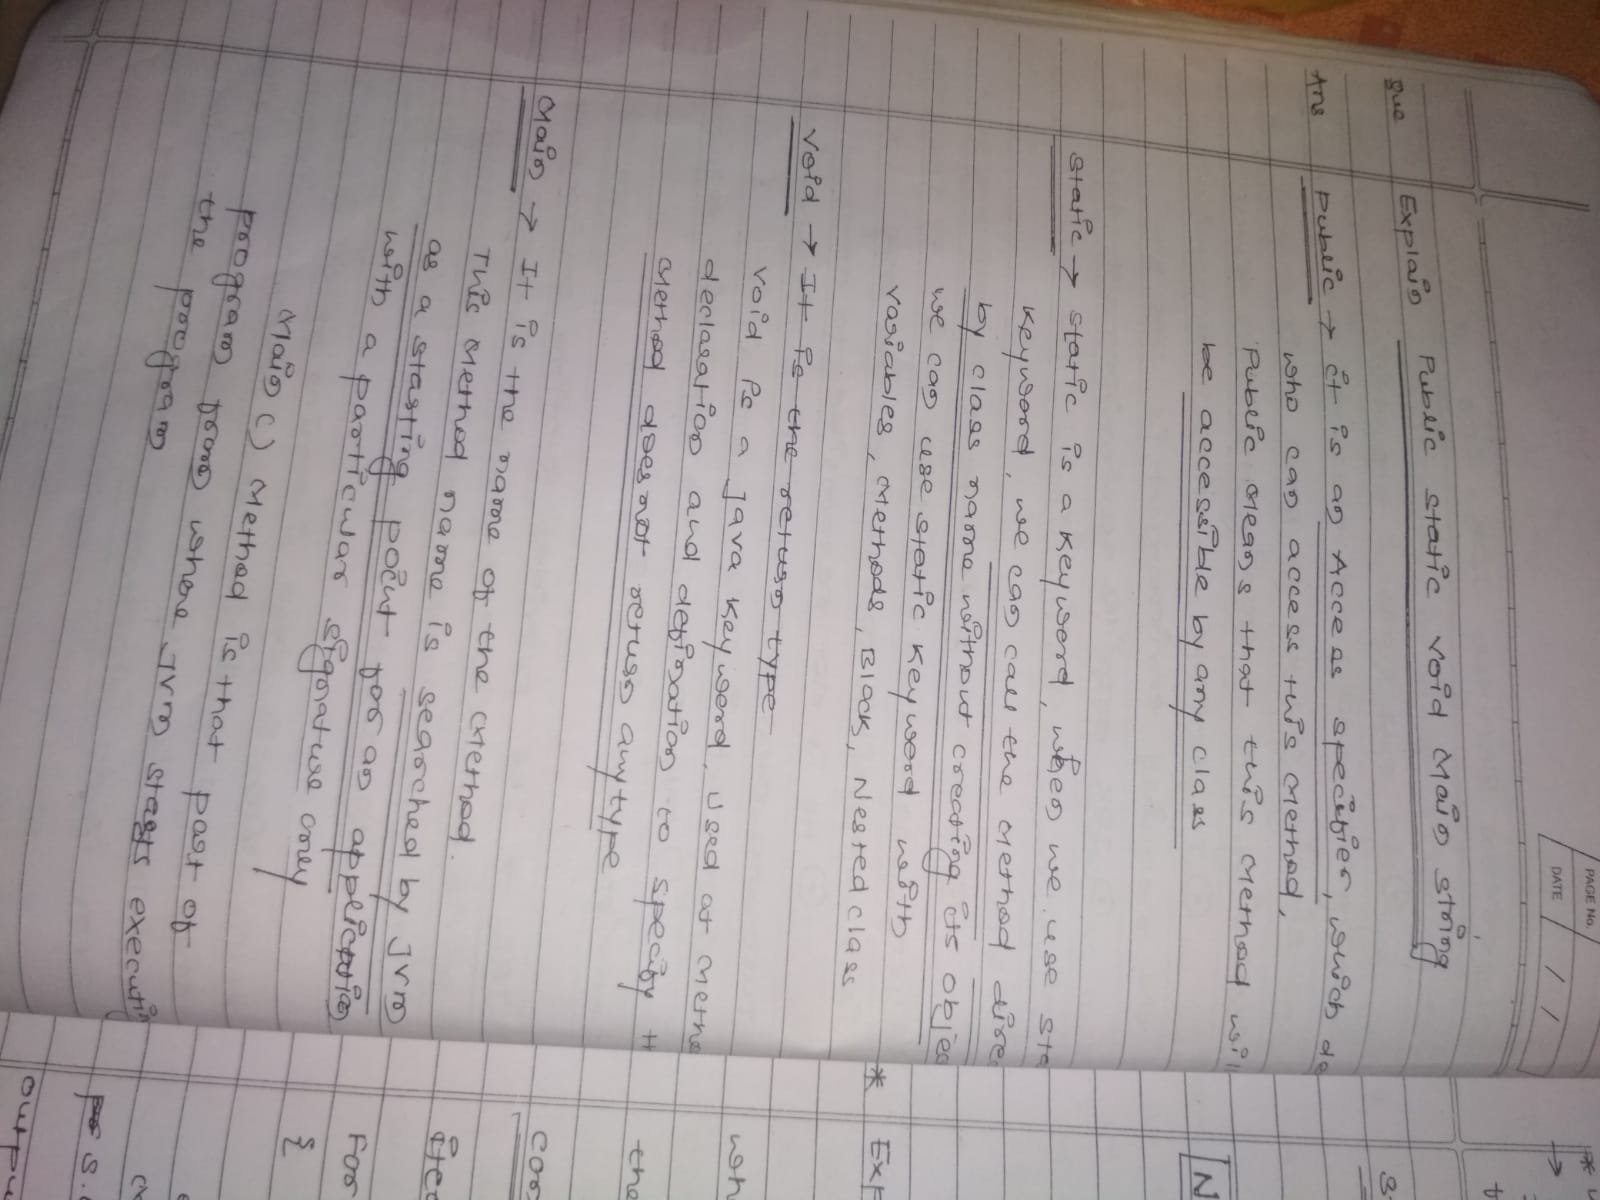 PAGE No.
DATE / /
Que Explain Public static void Main string
Ans Public → it is an Access specifier, which de
who can access this method,
Public means that this method wil
be accessible by any class
static → static is a keyword, when we use sta
keyword, we can call the method dire
by class name without creating its objec
we can use static keyword with
variables, methods, Block, Nested class
void → It is the return type
void is a Java keyword, used at metho
declaration and defination to specify t
method does not return any type
Main → It is the name of the method.
This method name is searched by JVM
as a starting point for an application
with a particular signature only
Main() method is that part of
program from where JVM starts executin
the program
* Exp
wh
the
Con
For
{
outpu
N